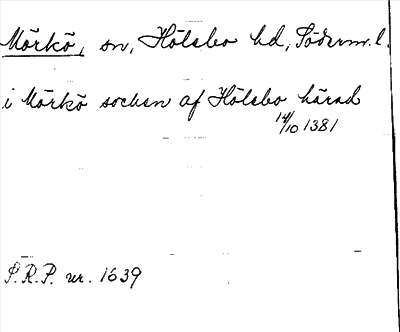 Mörkö, sn, Hölebo hd, Söderm. l.
i Mörkö socken af Hölebo härad
14/10 1381
S.R.P. nr. 1639